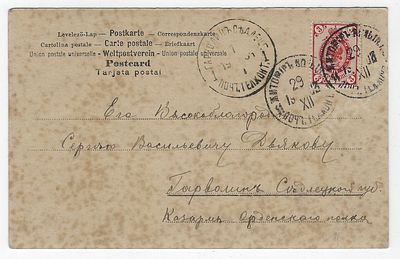 Levelező-Lap — Postkarte — Correspondenzkarte
Cartolina postale — Carte postale — Briefkaart
Union postale universelle — Weltpostverein — Unione postale universale
Postcard
Tarjeta postal
ЖИТОМІРЪ
29
XII
29
XII
Его Высокоблагор.
Сергѣю Васильевичу Дьякову
Гарволинъ Сѣдлецкой губ.
Казармы Орденскаго полка